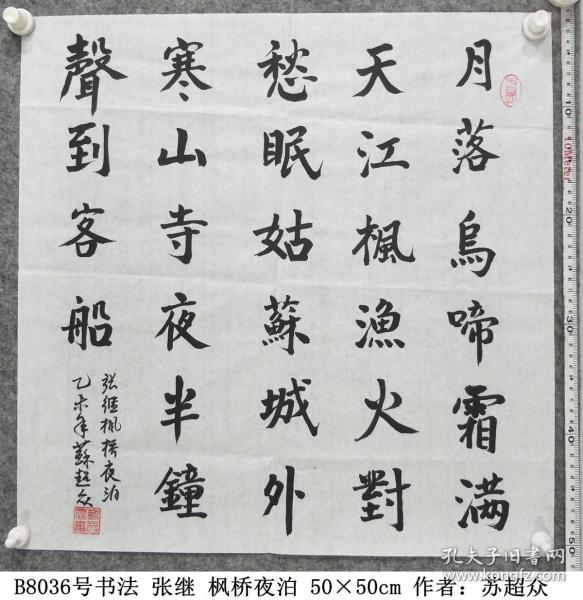 月落烏啼霜满
天江楓漁火對
愁眠姑蘇城外
寒山寺夜半鐘
聲到客船
张继枫桥夜泊
乙未年蘇超众
10Meter
10
20
30
40
50
孔夫子旧书网
B8036号书法 张继 枫桥夜泊 50×50cm 作者：苏超众